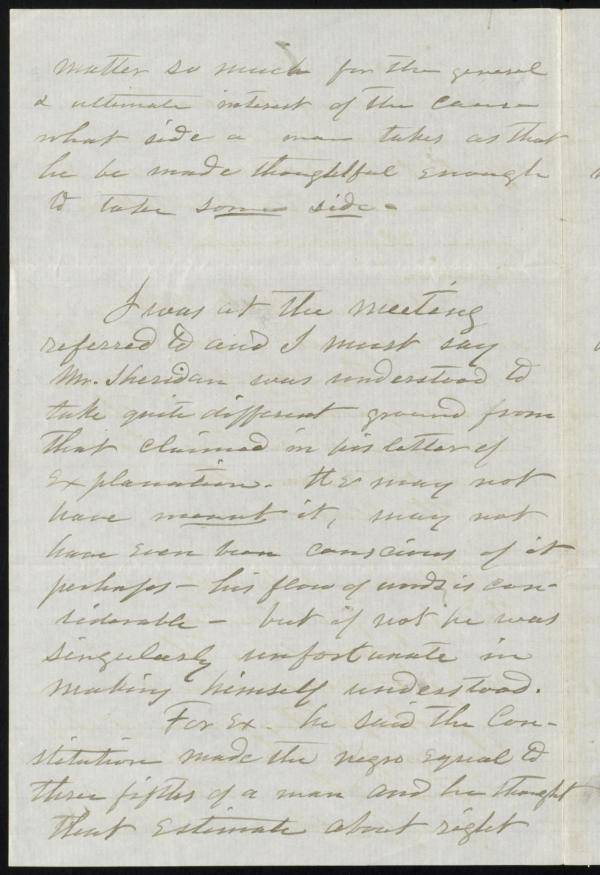 matter so much for the general
& ultimate interest of the cause
what side a man takes as that
he be made thoughtful enough
to take some side -
I was at the meeting
referred to and I must say
Mr. Sheridan was understood to
take quite different ground from
that claimed in his letter of
explanation. He may not
have meant it, may not
have even been conscious of it
perhaps - his flow of words is con-
siderable - but if not he was
singularly unfortunate in
making himself understood.
For Ex. he said the Con-
stitution made the negro equal to
three fifths of a man and he thought
that estimate about right